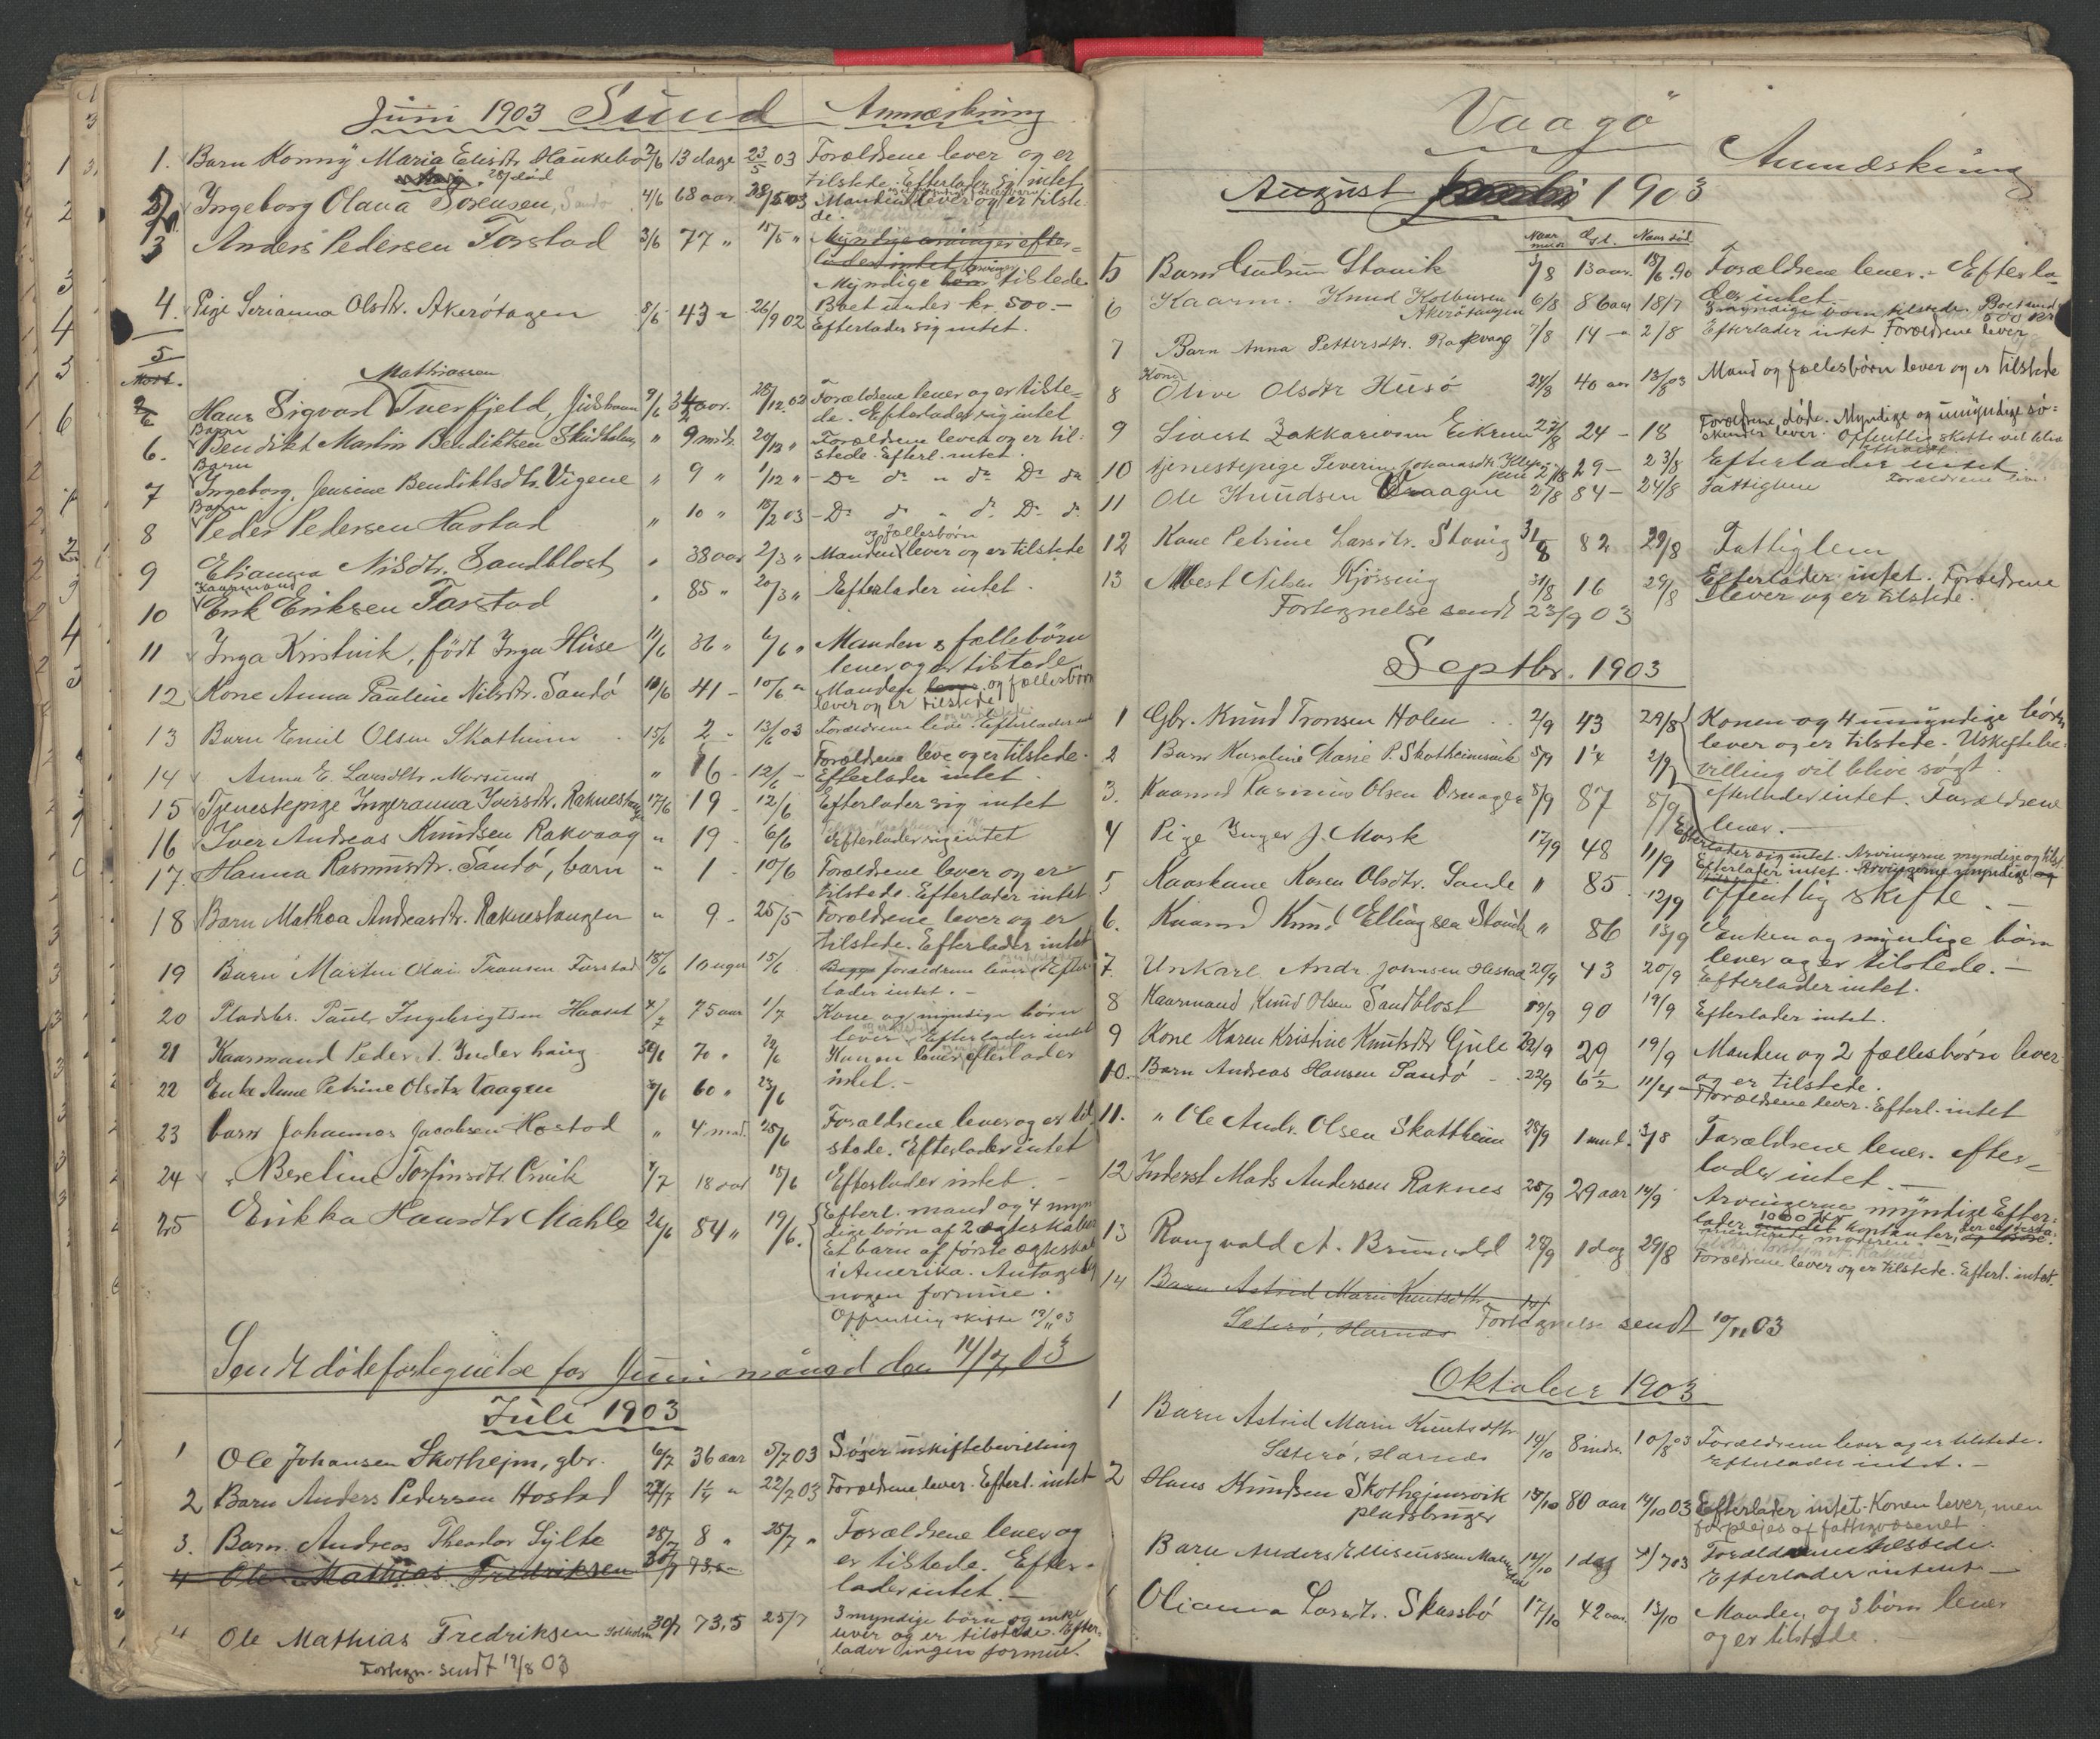 Juni 1903 Sund Anmerkning
1. Barn Konny Maria Elisdtr Haukebø 2/6 13 dage 23/5 03 Forældrene lever og er
tilstede. Efterlader sig intet
Ingeborg Olava Sørensen, 4/6 68 aar 28/5 03 Manden lever og er tilste-
de.
3 Anders Pedersen Farstad 3/6 77 " 15/5 " Myndige arvinger efter-
lader intet
Myndige tilstede
4. Pige Serianna Olsdtr. Akerøtagen 8/6 43 " 26/9 02 Boet under kr. 500.-
Efterlader sig intet.
5
Mathiassen
Hans Sigvart Tverfjeld, 9/6 34 aar. 28/12 02 Forældrene lever og er tilste-
de. Efterlader sig intet
Barn
6. Bendikt Martin Bendiktsen Skudholm " 9 mdr. 20/12 " Forældrene lever og er til-
stede. Efterl. intet.
Barn
7 Ingeborg Jensine Bendiktsdtr. Vigene " 9 " 1/12 " - Do do " do Do do
Barn
8 Peder Pedersen Harstad " 10 " 18/2 03 - Do do " do Do do
og fællesbørn
9 Elianna Nilsdtr. Sandblost " 38 aar 2/3 " Manden lever og er tilstede
Kaarmand
10 Erik Eriksen Farstad " 85 " 20/3 " Efterlader intet.
11 Inga Kristvik, født Inga Huse 11/6 36 " 6/6 " Manden & fællebørn
lever og er tilstede
12 Kone Anna Pauline Nilsdtr. Sandø 10/6 41 - 10/6 " Manden og fællesbørn
lever og er tilstede
13 Barn Emil Olsen Skotheim 15/6 2 - 13/6 03 Forældrene leve. Efterlader
14 Anna E. Larsdtr. Morsund " 16 - 12/6 - Forældrene leve og er tilstede.
Efterlader intet.
15 Tjenestepige Ingeranna Iversdtr. Raknes 17/6 19 - 12/6 Efterlader sig intet
16 Iver Andreas Knudsen Rakvaag " 19 - 6/6 Efterlader sig intet
17. Hanna Rasmusdtr. Sandø, barn " 1 - 10/6 Forældrene lever og er
tilstede. Efterlader intet
18 Barn Mathea Andreasdtr. Rakneshaugen " 9 - 25/5 Forældrene lever og er
tilstede. Efterlader intet
19 Barn Martin Olai Tronsen Farstad 18/6 10 uger 15/6 forældrene lever. Efter-
lader intet. -
20 Pladsbr. Paul Ingebrigtsen Haaset 4/7 75 aar 1/7 Kone og myndige børn
lever. Efterlader intet
21 Kaarmand Peder A. Inderhaug 70 " Konen lever, efterlader
intet.-
22 Enke Anne Petrine Olsdtr. Vaagen 60 " 23/6
23 barn Johannes Jacobsen Hostad " 4 mnd. 25/6 Forældrene lever og er til-
stede. Efterlader intet
24 " Beretine Torfinsdtr. 4/7 18 aar 18/6 Efterlader intet. -
25 Erikka Hansdtr. Mahle 84 " 19/6. Efterl. mand og 4 myn-
dige børn af 2 ægteskaber
Et barn af første ægteskab
i Amerika. Antagelig
nogen formue.
Offentlig skifte 19/11 03
Sendt dødefortegnelse for Juni måned den 14/7 03
Juli 1903
1 Ole Johansen Skothejm, gbr. 6/7 36 aar 5/7 03 Søger uskiftebevilling
2 Barn Anders Pedersen Hostad 27/7 1 1/4 " 22/7 03 Forældrene lever. Efterl. intet
3. Barn. Andreas Theodor Sylte 28/7 8 " 25/7 " Forældrene lever og
er tilstede. Efter-
lader intet. -
4 Ole Mathias Fredriksen 30/7 73.5 -
4 Ole Mathias Fredriksen 30/7 73,5 25/7 3 myndige børn og enke
lever og er tilstede. Efter-
lader ingen formue.
Fortegn. sendt 19/8 03
Vaagø
Anmerkning
August 1903
Naar død
5 Barn Gudrun Stavik 3/8 13 aar. 18/6 90 Forældrene lever. - Efterla-
der intet.
6 Kaarm. Knud Kolbensen
Akerøhaugen 6/8 86 aar 18/7 myndige børn tilstede. Boet under
500 kr
7 Barn Anna Pettersdtr. Rakvaag 7/8 14 - 2/8 Efterlader intet Forældrene lever
Kone
8 Olive Olsdtr Husø 24/8 40 aar 13/8 03 Mand og fællesbørn lever og er tilstede
9 Sivert Zakkariassen Eikrem 27/8 24 - 18 Forældrene døde. Myndige og umyndige sø-
skende lever. Offentlig skifte vil blive
10 tjenestepige Severine Johansdtr. 27/8 29 - 23/8 Efterlader intet.
Forældrene lever
11 Ole Knudsen Vraagen 27/8 84 - 24/8 Fattiglem
12 Kone Petrine Larsdtr. Stavig 31/8 82 29/8 Fattiglem
13 Albert Nilsen Kjørsing 31/8 16 29/8 Efterlader intet. Forældrene
lever og er tilstede.
Fortegnelse sendt 23/9 03
Septbr. 1903
1 Gbr. Knud Tronsen Holen 2/9 43 29/8 Konen og 4 umyndige børn
lever og er tilstede. Uskiftebe-
villing vil blive søgt.
2 Barn Karoline Marie P. Skotheimsvik 5/9 1 1/4 2/9 efterlader intet. Forældrene
lever. -
3. Kaarmd Rasmus Olsen Draagen 8/9 87 5/9
Efterlader sig intet. Arvingerne myndige og tilst.
4 Pige Inger J. Mork 17/9 48 11/9 Efterlader intet. Arvingerne myndige og
5 Kaarkone Karen Olsdtr. Sande " 85. 12/9 Offentlig skifte. -
6. Kaarmd Knud Ellingsen Stavik " 86 13/9 Enken og myndige børn
lever og er tilstede. -
7. Unkarl Andr. Johnsen Hestad 20/9 43 20/9 Efterlader intet.
8 Kaarmand Knud Olsen Sandblost 19/9 90 19/9 Efterlader intet.
9 Kone Karen Kristine Knutsdtr Gule 22/9 29 19/9 Manden og 2 fællesbørn lever
og er tilstede.
10. Barn Andreas Hansen Sandø - . 22/9 6 1/2 11/4 - Forældrene lever. Efterl. intet
11. " Ole Andr. Olsen Skottheim 28/9 1 mnd. 3/8 Forældrene lever. efter-
lader intet. -
12 Inderst Mads Andersen Raknes 28/9 29 aar 14/9 Arvingerne myndige Efter-
lader 1000 Kr kontanter,
moderen.
13 Rangvald A. Brunvold 28/9 1 dag 29/8 Forældrene lever og er tilstede. Efterl. intet.
14 Barn Astrid Marie Knutsdtr
Sæterø, Harnes Fortegnelse sendt 10/11 03
Oktober 1903
1 Barn Astrid Marie Knutsdtr
Sæterø, Harnes 14/10 8 mdr. 10/8 03 Forældrene lever og er tilstede.
Efterlader intet. -
2 Hans Knudsen Skothejmsvik
pladsbruger 15/10 80 aar 14/10 03 Efterlader intet. Konen lever, men
forplejes af fattigvæsenet.
Barn Anders Elliseussen 14/10 1 dag Forældrene tilstede.
Efterlader intet -
Olianna Larsdtr. Skarsbø 17/10 42 aar. 13/10 Manden og 3 børn lever
og er tilstede